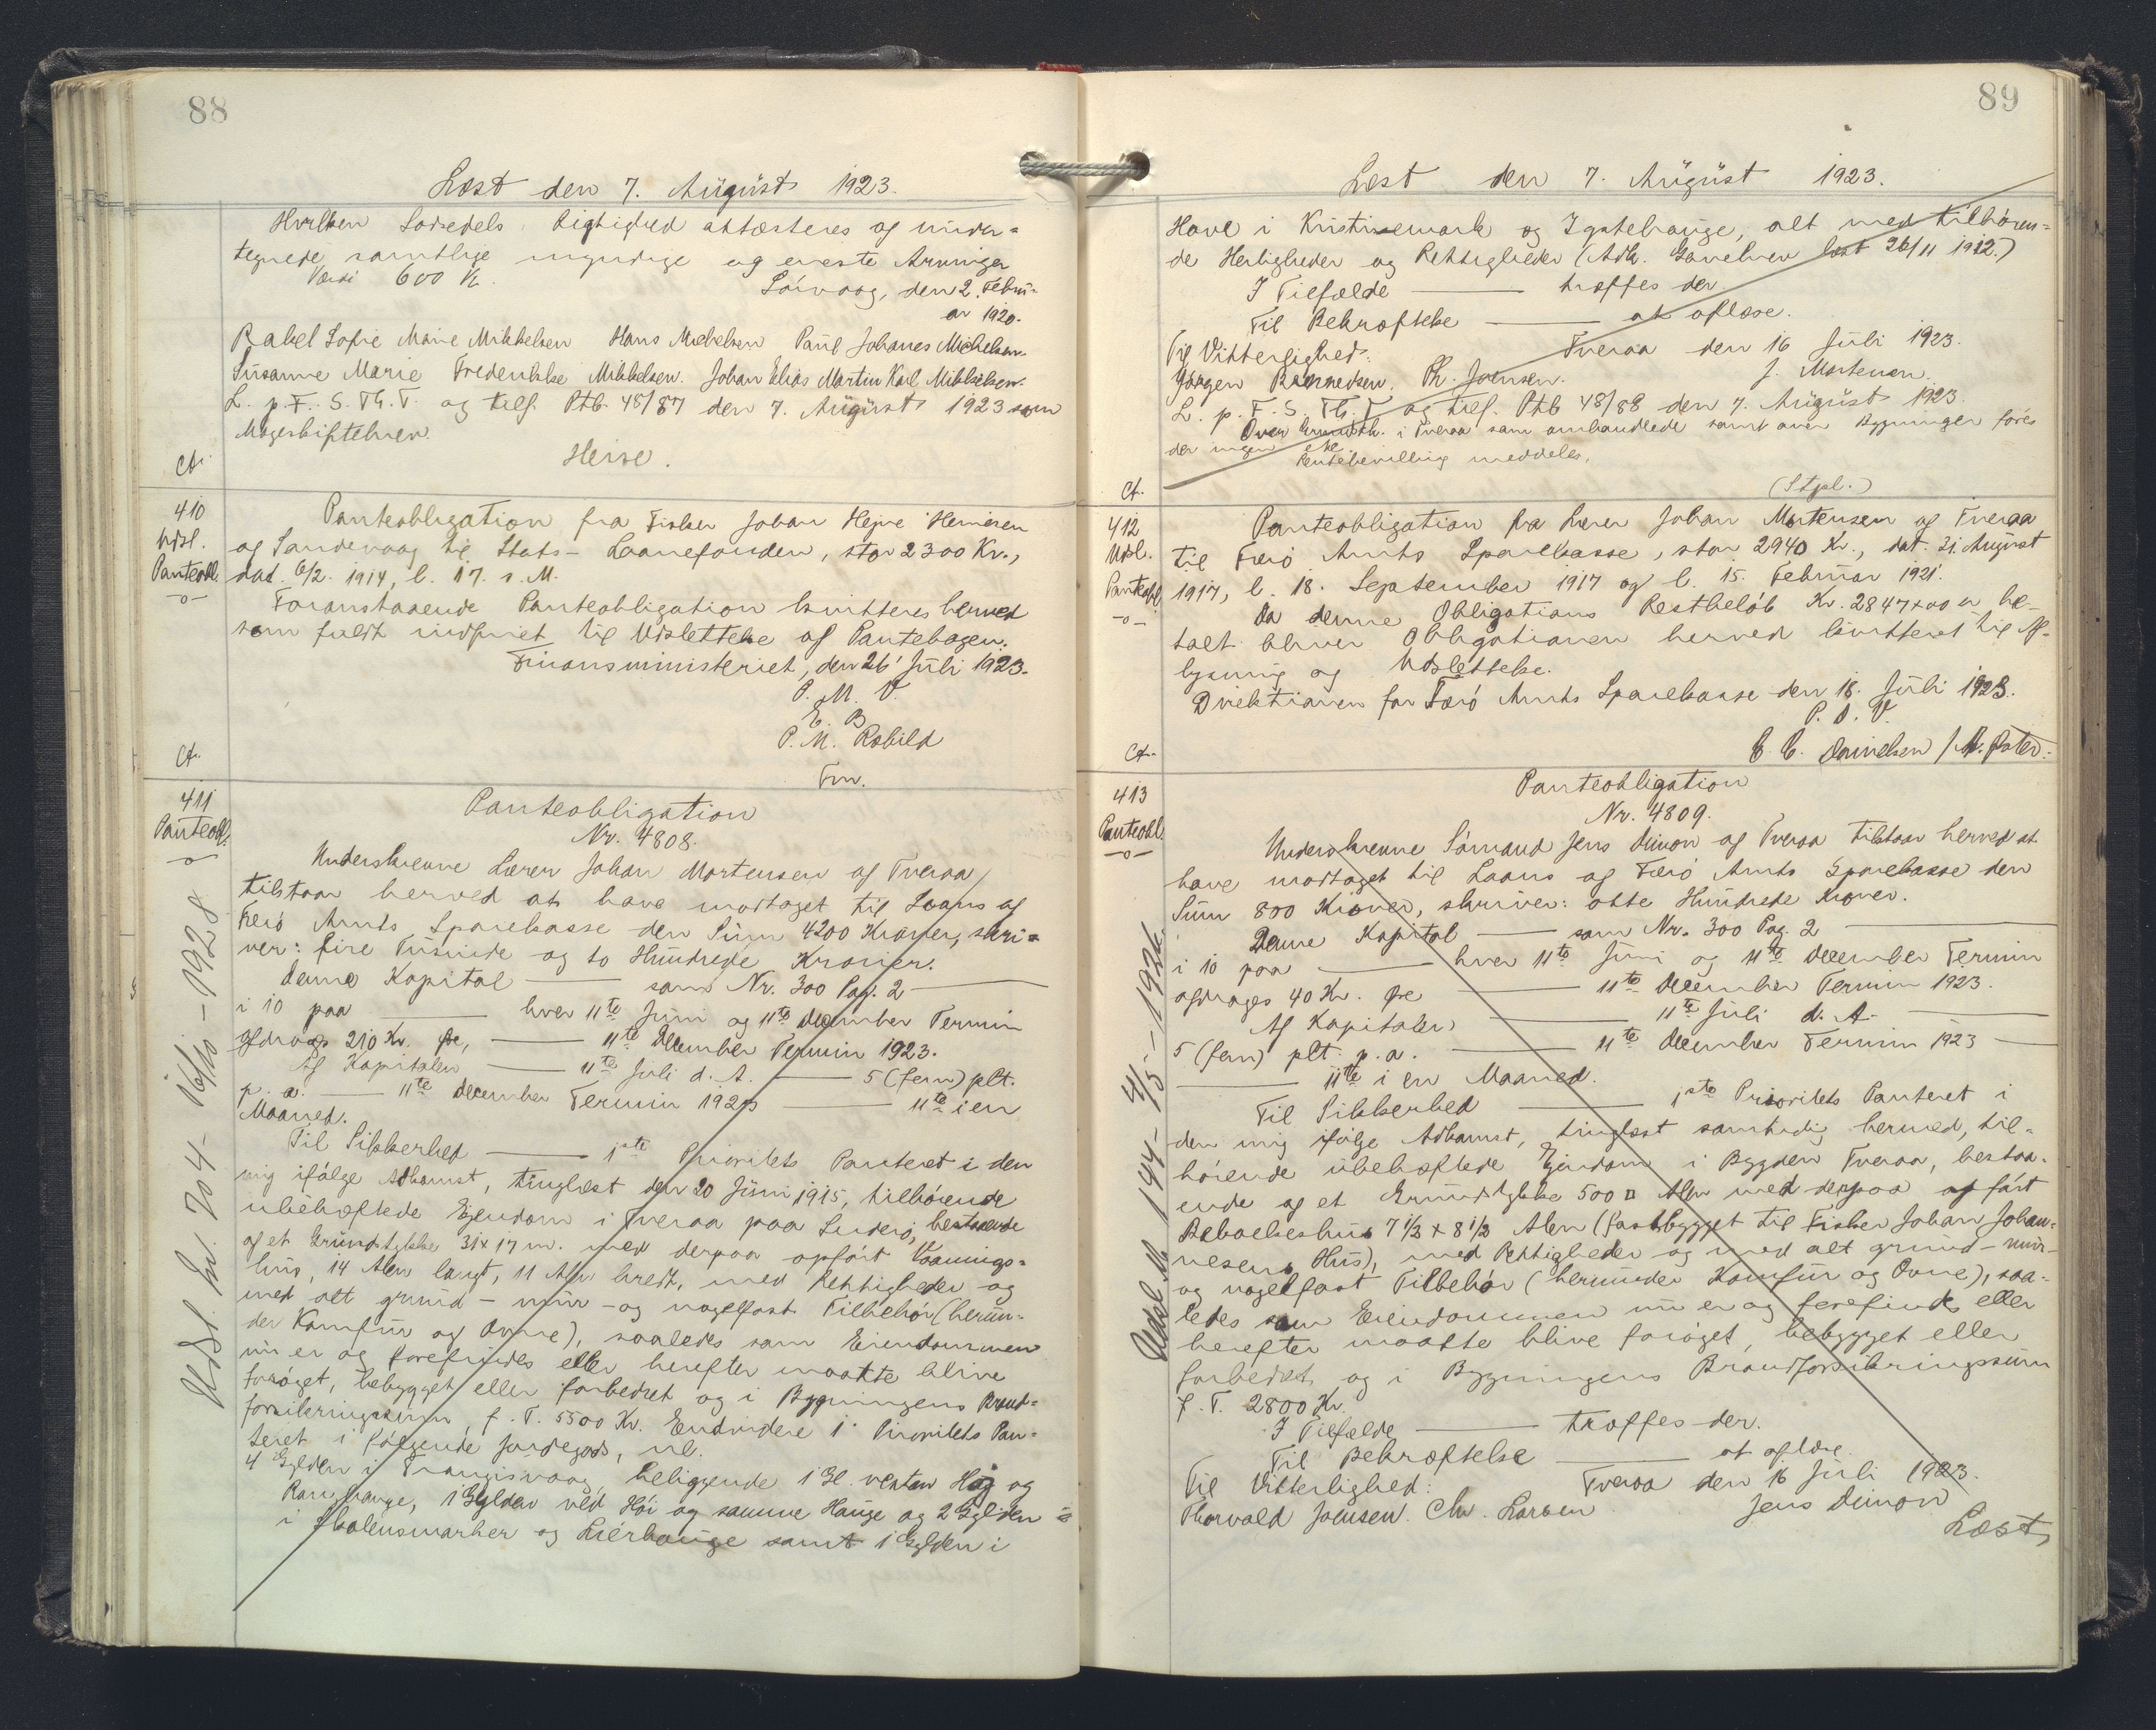 88
Læst den 7. August 1923.
Hvilken Lodsedels Rigtighed attesteres af under=
tegnede samtlige myndige og eneste Arvinger
Værdi 600 Kr.
Sörvaag, den 2. Febru=
ar 1920.
Rakel Sofie Marie Mikkelsen Hans Michelsen Paul Johanes Michelsen
Susanne Marie Fredenkke Mikkelsen. Johan Elias Martin Karl Mikkelsen.
L. p. F. S. Th. T. og tilf. Ptb. 48/87 den 7. August 1923 som
Mageskiftebrev.
Heise.
Ct.
410
Udsl.
Panteobl.
-o-
Panteobligation fra Fisker Johan Hejne Heinesen
af Sandevaag til Stats-Laanefonden, stor 2300 Kr.,
dat. 6/2. 1914, l. 17. s. M.
Foranstaaende Panteobligation kvitteres herved
som fuldt indfriet til Udslettelse af Pantebogen.
Finansministeriet, den 26' Juli 1923.
P. M. V.
E. B
P. M. Rabild
Fm.
Ct.
411
Panteobl.
-o-
Udsl. Nr. 704 - 16/10 - 1928
Panteobligation
Nr. 4808.
Underskrevne Lærer Johan Mortensen af Tveraa
tilstaar herved at have modtaget til Laans af
Færö Amts Sparekasse den Sum 4200 Kroner, skri=
ver: fire Tusinde og to Hundrede Kroner.
Denne Kapital —— som Nr. 300 Pag. 2 ——
i 10 paa —— hver 11te Juni og 11te December Termin
afdrages 210 Kr. Øre, —— 11te December Termin 1923.
Af Kapitalen —— 11te Juli d. A. —— 5 (fem) pCt.
p. a. —— 11te December Termin 1923 —— 11te i en
Maaned.
Til Sikkerhed —— 1ste Prioritets Panteret i den
mig ifölge Adkomst, tinglæst den 20 Juni 1915, tilhörende
ubehæftede Ejendom i Tveraa paa Suderö, bestaaende
af et Grundstykke 31 x 17 m. med derpaa opfört Vaanings=
hus, 14 Alen langt, 11 Alen bredt, med Rettigheder og
med alt grund- mur- og nagelfast Tilbehör (herun=
der Komfur og Ovne), saaledes som Eiendommen
nu er og forefindes eller herefter maatte blive
foröget, bebygget eller forbedret og i Bygningens Brand=
forsikringssum, p. T. 5500 Kr. Endvidere 1' Prioritets Pan=
teret i fölgende Jordegods, nl.
4 Gylden i Trangisvaag, beliggende 1 Gl. vestan Háj og
Ranghauge, 1 Gylden ved Hói og samme Hauge og 2 Gylden
i Skalensmarker og Lierhauge samt 1 Gylden i
89
Læst den 7. August 1923.
Have i Kristinemark og Igstehauge, alt med tilhören=
de Herligheder og Rettigheder (Adk. Gavebrev læst 26/11 1912.)
I Tilfælde —— træffes der.
Til Bekræftelse —— at aflæse.
Til Vitterlighed: Tveraa den 16 Juli 1923.
Jörgen Bænnedsen. Ph. Joensen. J. Mortensen.
L. p. F. S. Th. T. og tilf. Ptb 48/88 den 7. August 1923.
Over Grundstk. i Tveraa som omhandlede samt over Bygninger föres
der ingen
Rentebevilling meddeles.
Ct.
412
Udsl.
Panteobl
-o-
(Stpl.)
Panteobligation fra Lærer Johan Mortensen af Tveraa
til Færö Amts Sparekasse, stor 2940 Kr., dat. 31. August
1917, l. 18. September 1917 og l. 15. Februar 1921.
Da denne Obligations Restbelöb Kr. 2847+00 er be-
talt bliver Obligationen herved kvitteret til Af-
lysning og Udslettelse.
Direktionen for Færö Amts Sparekasse den 18. Juli 1923.
P. D. V.
C. C. Danielsen / M. Øster.
Ct.
413
Panteobl.
-o-
Udsl. Nr. 144 - 4/5 - 192
Panteobligation
Nr. 4809.
Underskrevne Sömand Jens Dimon af Tveraa tilstaar herved at
have modtaget til Laans af Færö Amts Sparekasse den
Sum 800 Kroner, skriver: otte Hundrede Kroner.
Denne Kapital —— som Nr. 300 Pag. 2 ——
i 10 paa —— hver 11te Juni og 11te December Termin
afdrages 40 Kr. Øre —— 11te December Termin 1923.
Af Kapitalen —— 11te Juli d. A. ——
5 (fem) pCt. p. a. —— 11te December Termin 1923 ——
—— 11te i en Maaned.
Til Sikkerhed —— 1ste Prioritets Panteret i
den mig ifölge Adkomst, tinglæst samtidig hermed, til=
hörende ubehæftede Ejendom i Bygden Tveraa, bestaa=
ende af et Grundstykke 500 □ Alen med derpaa opfört
Beboelseshus 7 1/2 x 8 1/2 Alen (fastbygget til Fisker Johan Johan=
nesens Hus), med Rettigheder og med alt grund- mur-
og nagelfast Tilbehör (herunder Komfur og Ovne), saa=
ledes som Eiendommen nu er og forefindes eller
herefter maatte blive foröget, bebygget eller
forbedret og i Bygningens Brandforsikringssum
p. T. 2800 Kr.
I Tilfælde —— træffes der.
Til Bekræftelse —— at aflæse.
Til Vitterlighed: Tveraa den 16 Juli 1923.
Thorvald Joensen. Chr. Larsen Jens Dimon
Læst